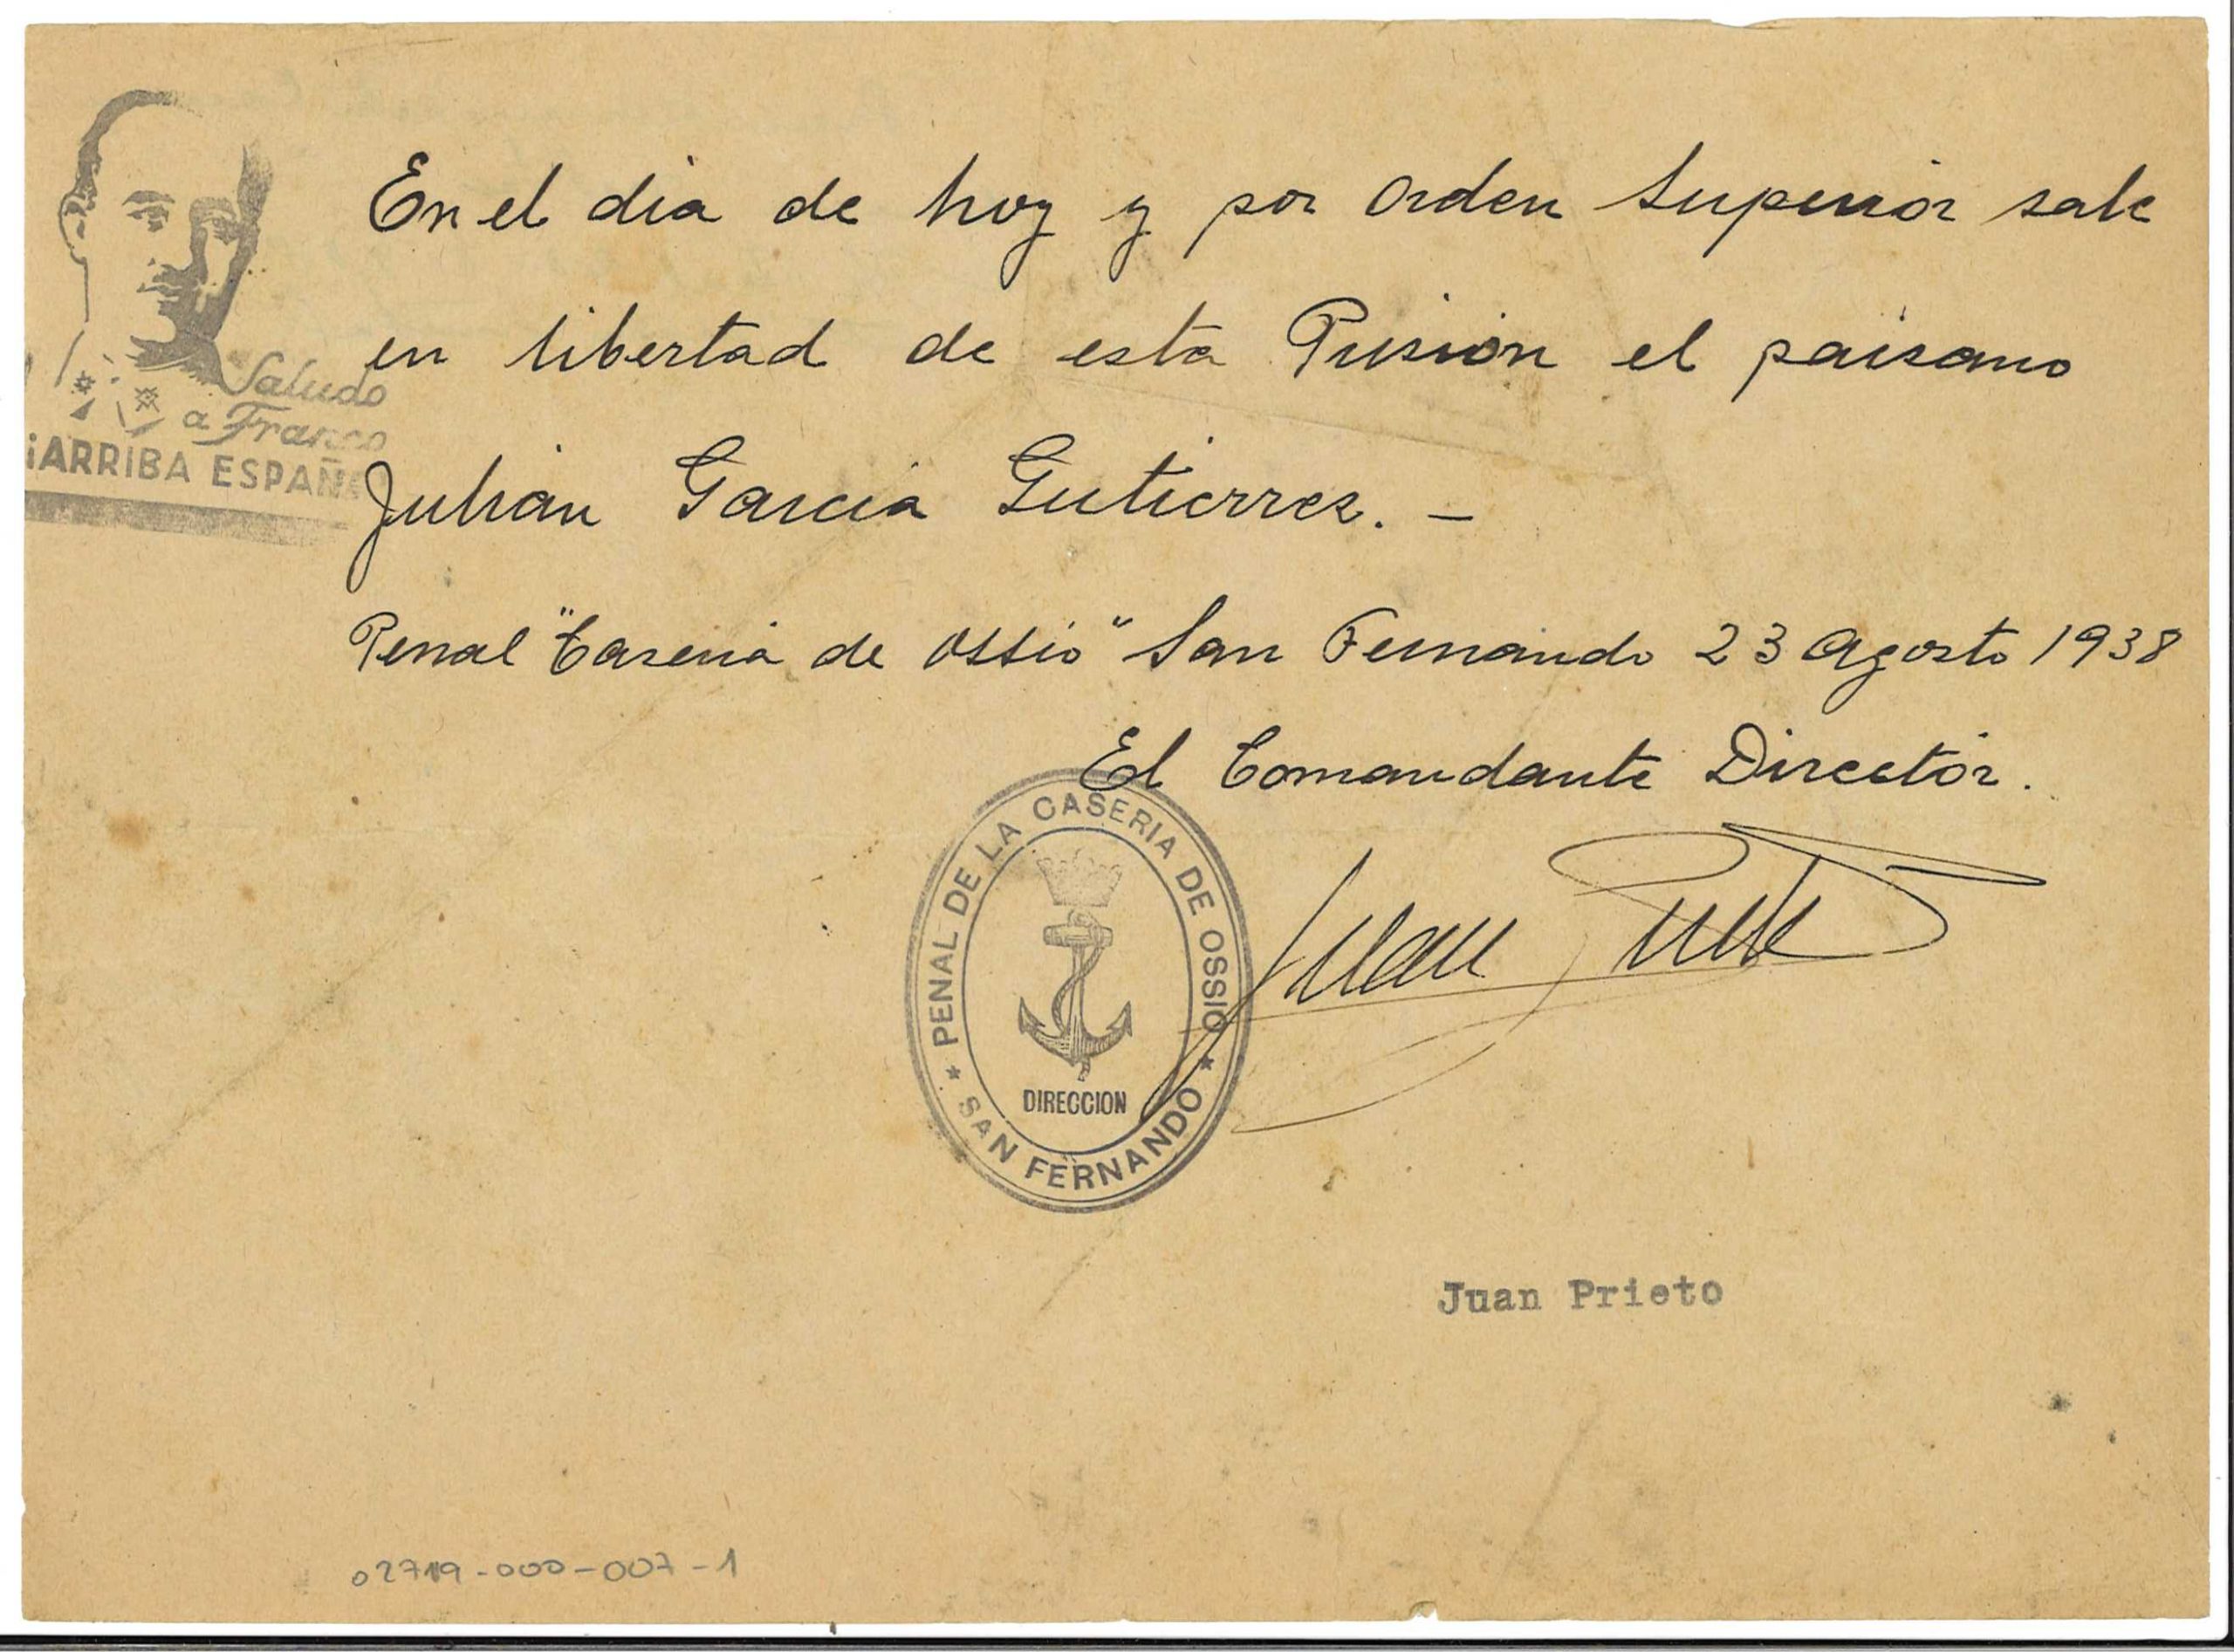 Saludo
a Franco
¡ARRIBA ESPAÑ
En el dia de hoy y por orden Superior sale
en libertad de esta Prisión el paisano
Julián García Gutierrez. –
Penal "Caseria de Ossio" San Fernando 23 Agosto 1938
El Comandante Director.
Juan Prieto
PENAL DE LA CASERIA DE OSSIO
DIRECCION
* SAN FERNANDO *
Juan Prieto
02719-000-007-1